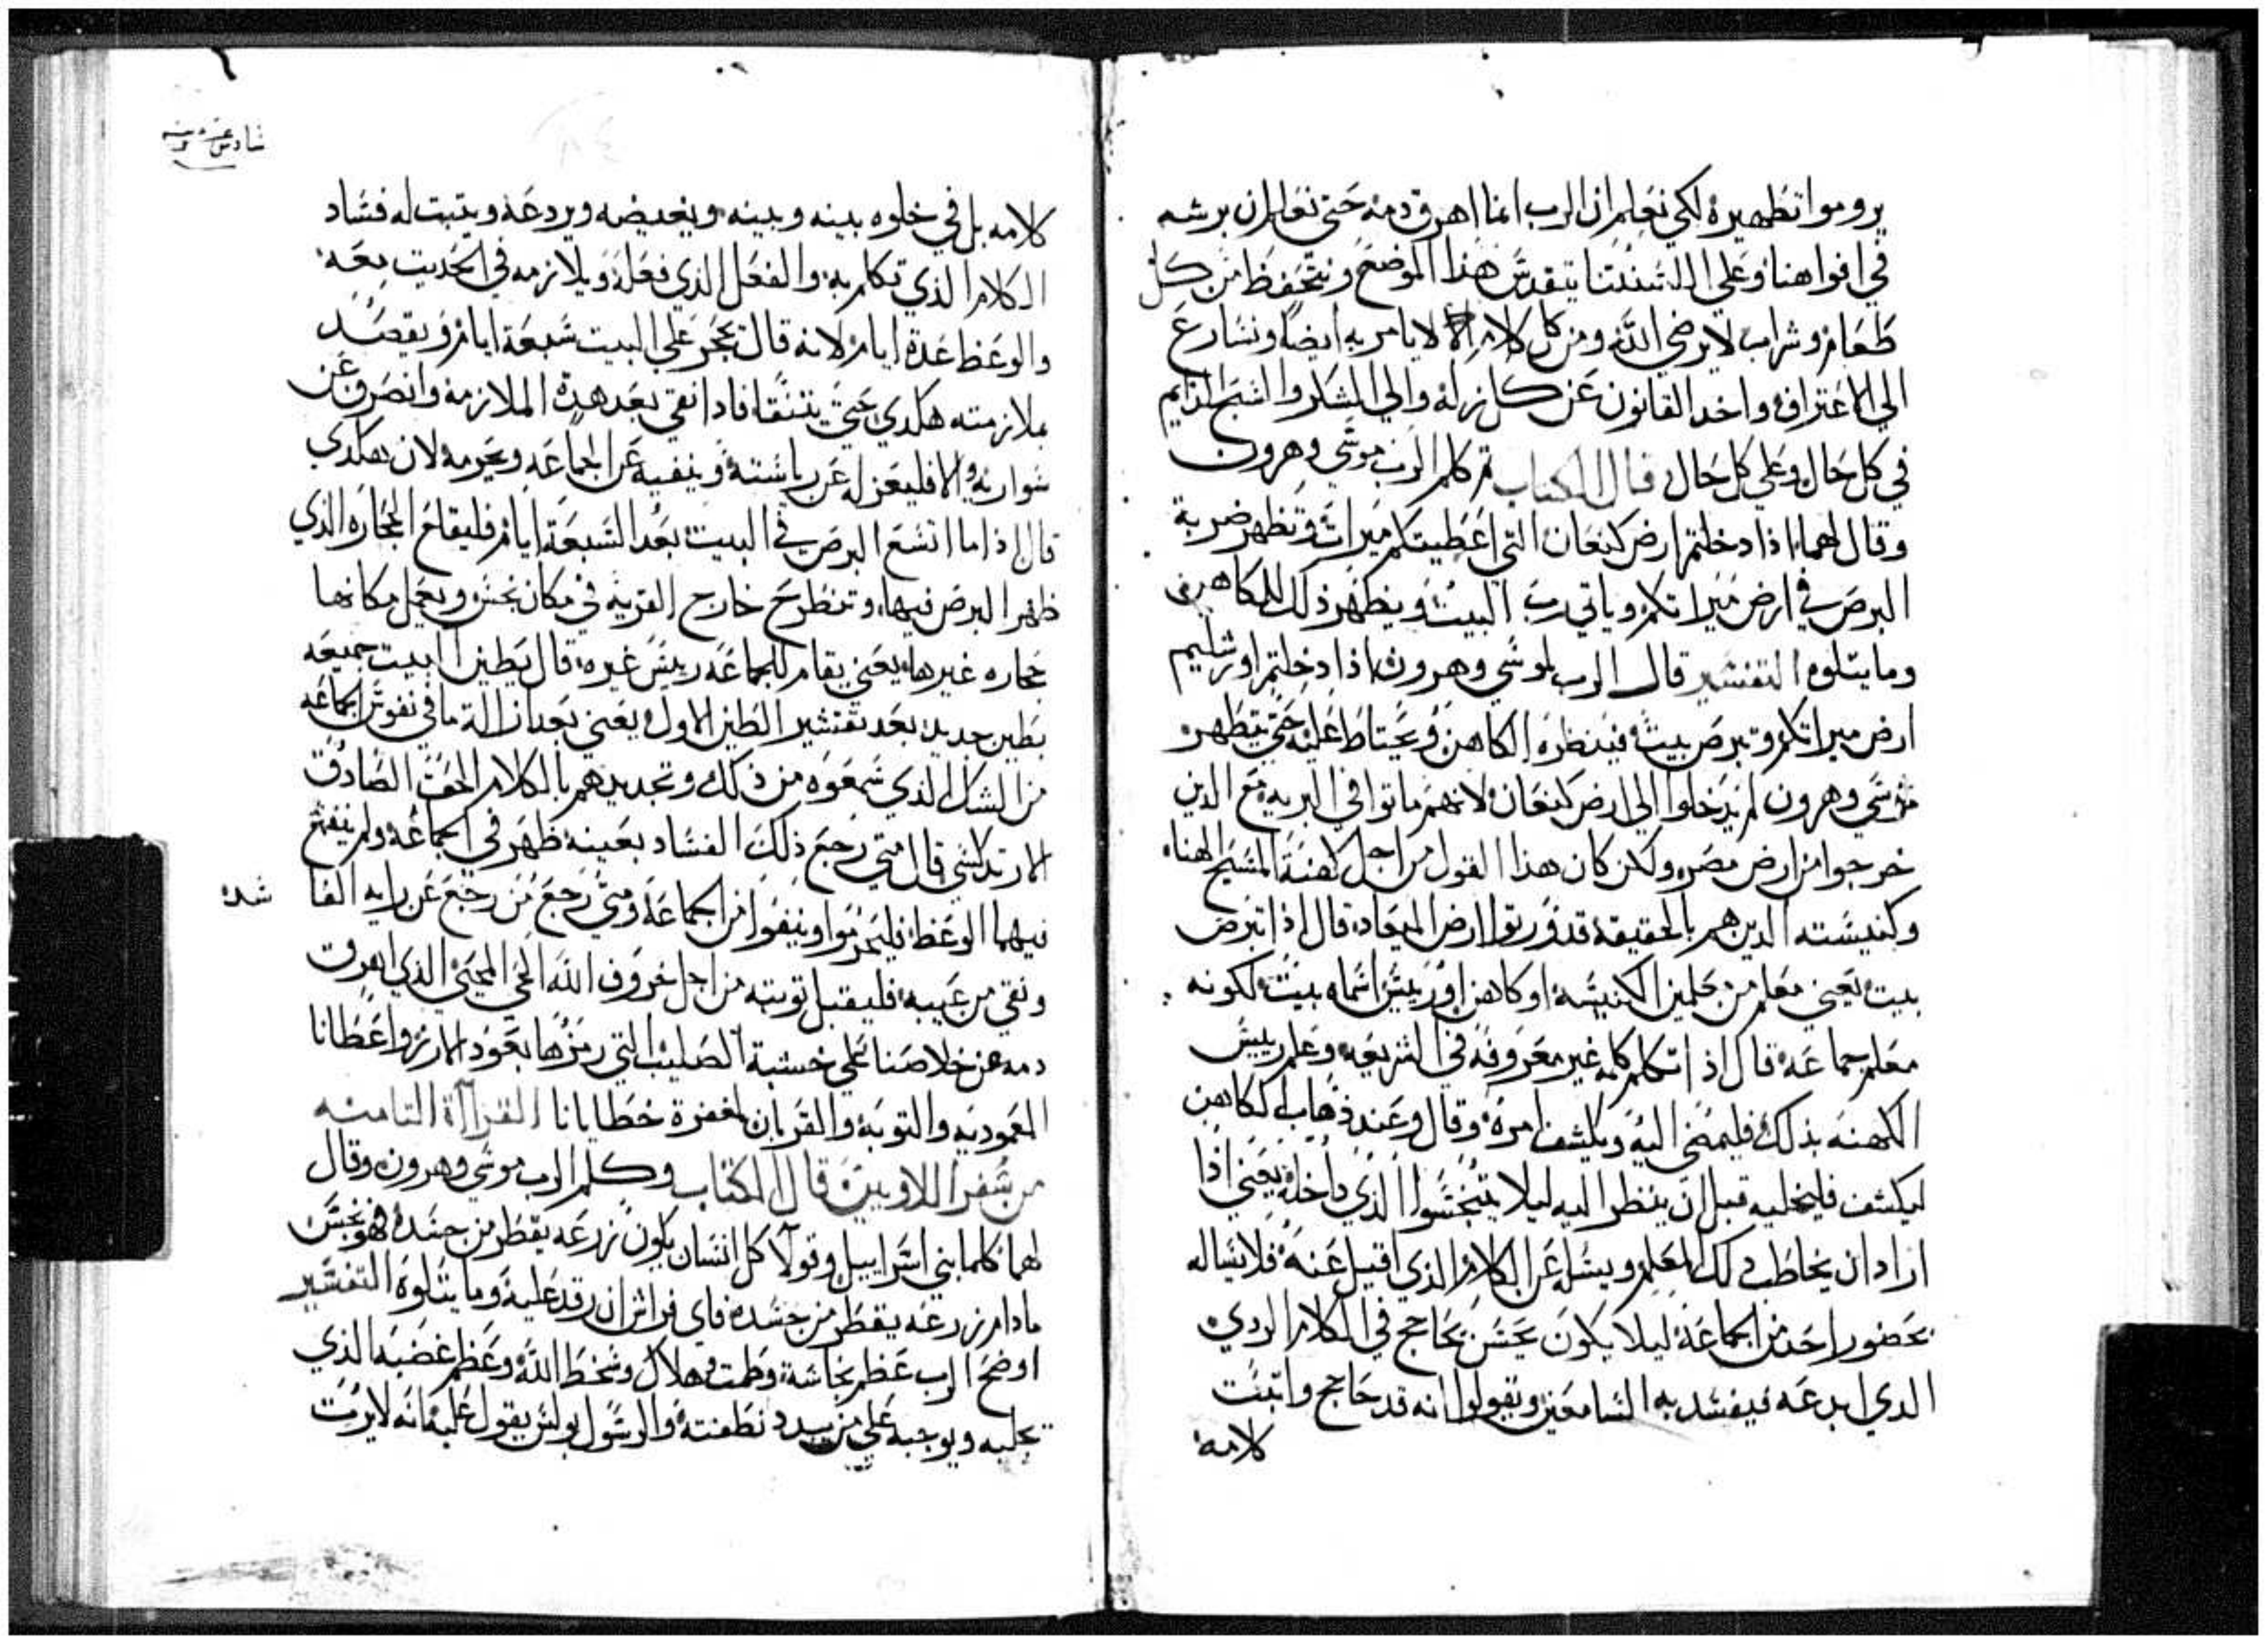 يروموا تطهيره لكي نعلم ان الرب انما اهرق دمه حتي نعلم ان برشه
في افواهنا وعلي السنتنا يتقدس هذا الموضع ونتحفظ من كل
طعام وشراب لا يرضي الله ومن كل كلام لا يامر به ايضا ونسارع
الي الاعتراف واخد القانون عن كل زله والي الشكر والتسبيح الدايم
في كل حال وعلي كل حال قال الكتاب ثم كلم الرب موسي وهرون
وقال لهما اذا دخلتم ارض كنعان التي اعطيتكم ميراث وتظهر ضربة
البرص في ارض ميراتكم وياتي رب البيت ويظهر ذلك للكاهن
وما يتلوه التفسير قال الرب لموسي وهرون اذا دخلتم اورشليم
ارض ميراتكم وتبرص بيت فينظره الكاهن ويحتاط عليه حتي يتطهر
موسي وهرون لم يدخلوا الي ارض كنعان لانهم ماتوا في البريه مع الدين
خرجوا من ارض مصر ولكن كان هذا القول من اجل كهنة المسيح الهنا
وكنيسته الدين هم بالحقيقة قد ورتوا ارض الميعاد قال اذا تبرص
بيت يعني معلم من معلمين الكنيسه او كاهن او رييس اسماه بيت لكونه
معلم جماعه قال اذا تكلم كلمه غير معروفه في الشريعه وعلم رييس
الكهنه بذلك فليمضي اليه ويكشف امره وقال وعند ذهاب الكاهن
ليكشف فليخليه قبل ان ينظر اليه ليلا يتنجسوا الذي داخله يعني اذا
اراد ان يخاطب ذلك المعلم ويسله عن الكلام الذي اقيل عنه فلا يساله
بحضور احد من الجماعة ليلا يكون يحسن يحاجج في الكلام الردي
الدي ابدعه فيفسد به السامعين ويقولوا انه قد حاجج واتبت
كلامه
كلامه بل في خلوه بينه وبينه ويغيضه ويردعه ويتبت له فساد
الكلام الذي تكلم به والفعل الذي فعله ويلازمه في الحديت معه
والوعظ عدة ايام لانه قال يحجر علي البيت سبعة ايام ويقصد
ملازمته هكدي حتي يتنقا فادا نقي بعد هدة الملازمه وانصرف عن
سو رايه والا فليعزله عن رياسته وينفيه عن الجماعه ويحرمه لان هكدي
قال اذا ما اتسع البرص في البيت بعد السبعة ايام فليقلع الحجاره الذي
ظهر البرص فيها وتنطرح خارج القريه في مكان نجس ويعمل مكانها
حجاره غيرها يعني يقام للجماعه رييس غيره قال يطين البيت جميعه
بطين جديد بعد تقشير الطين الاول يعني بعد ازالة ما في نفوس الجماعه
من الشك الذي سمعوه من ذلك وتجديدهم بالكلام الحق الصادق
الارتدكسي قال متي رجع ذلك الفساد بعينه ظهر في الجماعه ولم ينفع
فيهما الوعظ فليحرموا وينفوا من الجماعه ومتي رجع من رجع عن رايه الفا
شده
ونقي من عيبه فليقبل توبته من اجل خروف الله الحي المحيي الذي اهرق
دمه عن خلاصنا علي خشبة الصليب التي رمزها بعود الارز واعطانا
المعموديه والتوبه والقربان لمغفرة خطايانا القراآة التامنه
من سفر اللاويين قال الكتاب وكلم الرب موسي وهرون وقال
لهما كلما بني اسراييل وقولا كل انسان يكون زرعه يقطر من جسده فهو نجس
ما دام زرعه يقطر من جسده فاي فراش ان رقد عليه وما يتلوه التفسير
اوضح الرب عظم نجاسة وطمت وهلاك وسخط الله وعظم غضبه الذي
يجلبه ويوجبه علي من يبدد نطفته والرسول بولس يقول عليه انه لا يرت